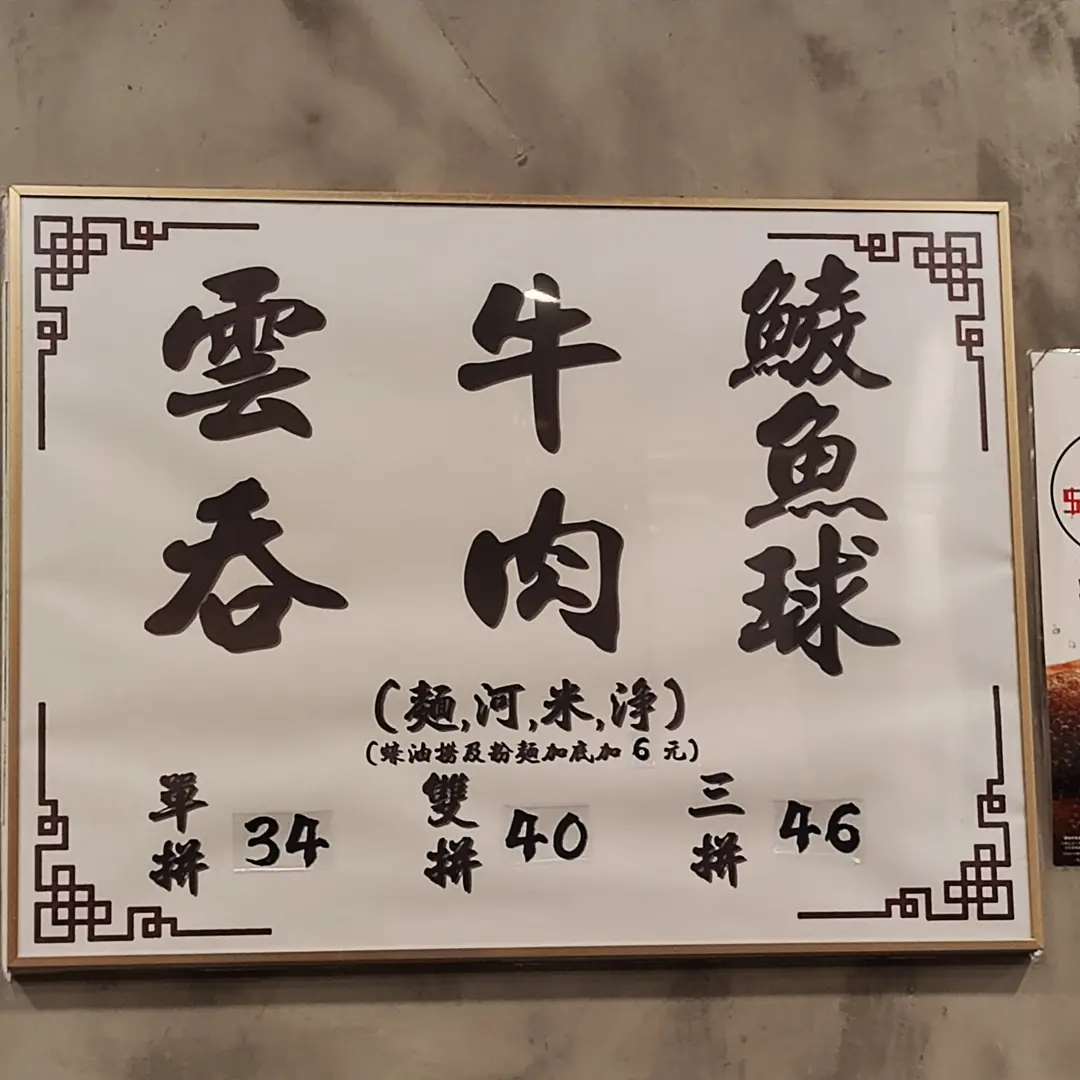 雲吞
牛肉
鯪魚球
(麵,河,米,淨)
(蠔油撈及粉麵加底加 6 元)
單拼 34
雙拼 40
三拼 46
$